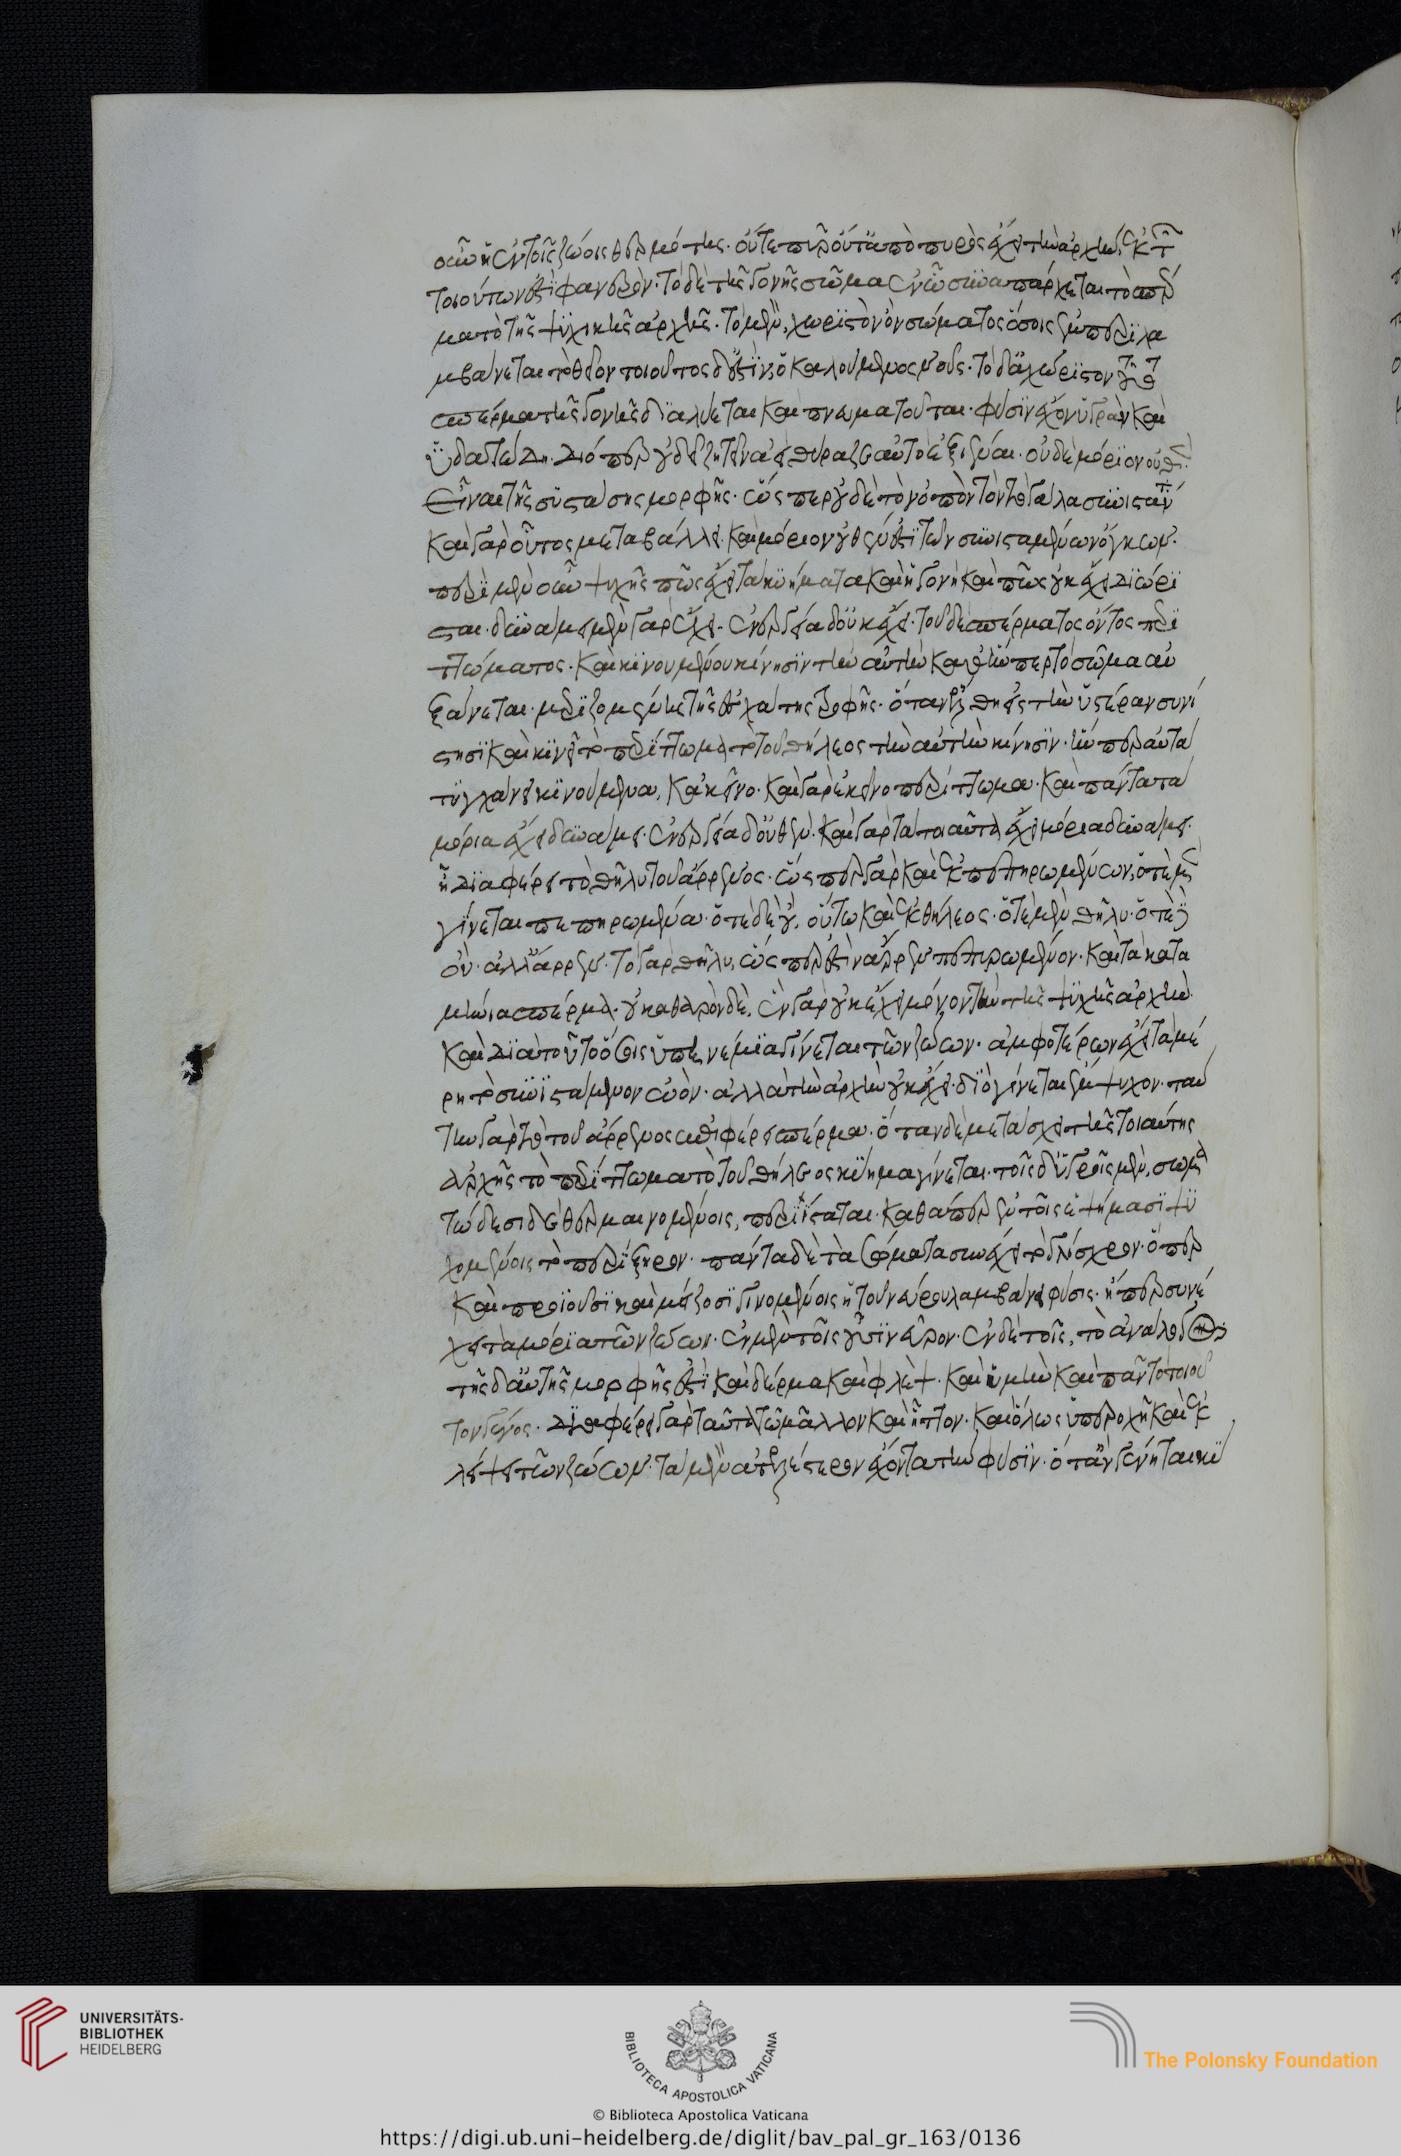 οὖν ἡ ἐν τοῖς ζώοις θερμότης· οὔτε πῦρ οὔτ' ἀπὸ πυρὸς ἔχει τὴν ἀρχήν, ἐκ τῶν
τοιούτων ἐστὶ φανερόν· τὸ δὲ τῆς γονῆς σῶμα ἐν ᾧ συναπέρχεται τὸ σπέρ
μα τὸ τῆς ψυχικῆς ἀρχῆς· τὸ μὲν, χωριστὸν ὂν σώματος ὅσοις ἐμπεριλα
μβάνεται τὸ θεῖον τοιοῦτος δ' ἐστὶν, ὁ καλούμενος νοῦς· τὸ δ' ἀχώριστον
σπέρμα τῆς γονῆς διαλύεται καὶ πνευματοῦται· φύσιν ἔχον ὑγρὰν καὶ
ὑδατώδη· διόπερ οὐ δεῖ ζητεῖν ἀεὶ θύραζε αὐτὸ ἐξιέναι· οὐδὲ μόριον οὐθὲν
εἶναι τῆς συστάσης μορφῆς· ὥσπερ οὐδὲ τὸν ὀπὸν τὸν τὸ γάλα συνιστάντα
καὶ γὰρ οὗτος μεταβάλλει· καὶ μόριον οὐθέν ἐστι τῶν συνισταμένων ὄγκων·
περὶ μὲν οὖν ψυχῆς πῶς ἔχει τὰ κυήματα καὶ ἡ γονὴ καὶ πῶς οὐκ ἔχει διώρι
σται· δυνάμει μὲν γὰρ ἔχει· ἐνεργείᾳ δ' οὐκ ἔχει· τοῦ δὲ σπέρματος ὄντος περι
ττώματος· καὶ κινουμένου κίνησιν τὴν αὐτὴν καθ' ἥνπερ τὸ σῶμα αὐ
ξάνεται· μεριζομένης τῆς ἐσχάτης τροφῆς· ὅταν ἔλθῃ εἰς τὴν ὑστέραν συνί
στησι καὶ κινεῖ τὸ περίττωμα τὸ τοῦ θήλεος τὴν αὐτὴν κίνησιν· ἥνπερ αὐτὸ
τυγχάνει κινούμενον, κἀκεῖνο· καὶ γὰρ ἐκεῖνο περίττωμα· καὶ πάντα τὰ
μόρια ἔχει δυνάμει· ἐνεργείᾳ δ' οὐθέν· καὶ γὰρ τὰ τοιαῦτα ἔχει μόρια δυνάμει·
ἧ διαφέρει τὸ θῆλυ τοῦ ἄρρενος· ὥσπερ γὰρ καὶ ἐκ πεπηρωμένων, ὁτὲ μὲν
γίνεται πεπηρωμένα· ὁτὲ δὲ οὔ, οὕτω καὶ ἐκ θήλεος· ὁτὲ μὲν θῆλυ· ὁτὲ δ'
οὔ· ἀλλ' ἄρρεν· τὸ γὰρ θῆλυ, ὥσπερ ἐστὶν ἄρρεν πεπηρωμένον· καὶ τὰ κατα
μήνια σπέρμα· οὐ καθαρὸν δὲ, ἓν γὰρ οὐκ ἔχει μόνον τὴν τῆς ψυχῆς ἀρχὴν
καὶ διὰ τοῦτο ὅσοις ὑπηνέμια γίνεται τῶν ζώων· ἀμφοτέρων ἔχει τὰ μέ
ρη τὸ συνιστάμενον ὠόν· ἀλλὰ τὴν ἀρχὴν οὐκ ἔχει· διὸ γίνεται ἔμψυχον· ταύ
την γὰρ τὸ τοῦ ἄρρενος ἐπιφέρει σπέρμα· ὅταν δὲ μετάσχῃ τῆς τοιαύτης
ἀρχῆς τὸ περίττωμα τὸ τοῦ θήλεος κύημα γίνεται· τοῖς δ' ὑγροῖς μὲν, σωμα
τώδεσι δὲ θερμαινομένοις, περιΐσταται· καθάπερ ἐν τοῖς ἑψήμασι ψυ
χομένοις τὸ περίξηρον· πάντα δὲ τὰ σώματα συνέχει τὸ γλίσχρον· ὅπερ
καὶ προϊοῦσι καὶ μείζοσι γινομένοις ἡ τοῦ νεύρου λαμβάνει φύσις· ἥπερ συνέ
χει τὰ μόρια τῶν ζώων· ἐν μὲν τοῖς οὖσιν νεῦρον· ἐν δὲ τοῖς, τὸ ἀνάλογον
τῆς δ' αὐτῆς μορφῆς ἐστὶ καὶ δέρμα καὶ φλὲψ· καὶ ὑμὴν καὶ πᾶν τὸ τοιοῦ
τον γένος· διαφέρει γὰρ ταῦτα τῷ μᾶλλον καὶ ἧττον· καὶ ὅλως ὑπεροχῇ καὶ ἐκ
λείψει τῶν ζώων· τὰ μὲν ἀτελέστερον ἔχοντα τὴν φύσιν· ὅταν γένηται κύ
UNIVERSITÄTS-
BIBLIOTHEK
HEIDELBERG
BIBLIOTECA APOSTOLICA VATICANA
The Polonsky Foundation
© Biblioteca Apostolica Vaticana
https://digi.ub.uni-heidelberg.de/diglit/bav_pal_gr_163/0136